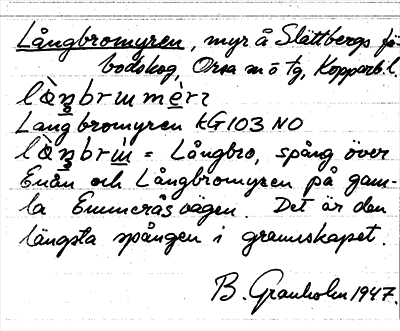 Långbromyren, myr å Slättbergs fä-
bodskog, Orsa sn o tg, Kopparb. l.
Långbromyren KG103 NO
= Långbro, spång över
Enån och Långbromyren på gam-
la Emmeråsvägen. Det är den
längsta spången i grannskapet.
B. Granholm 1947.